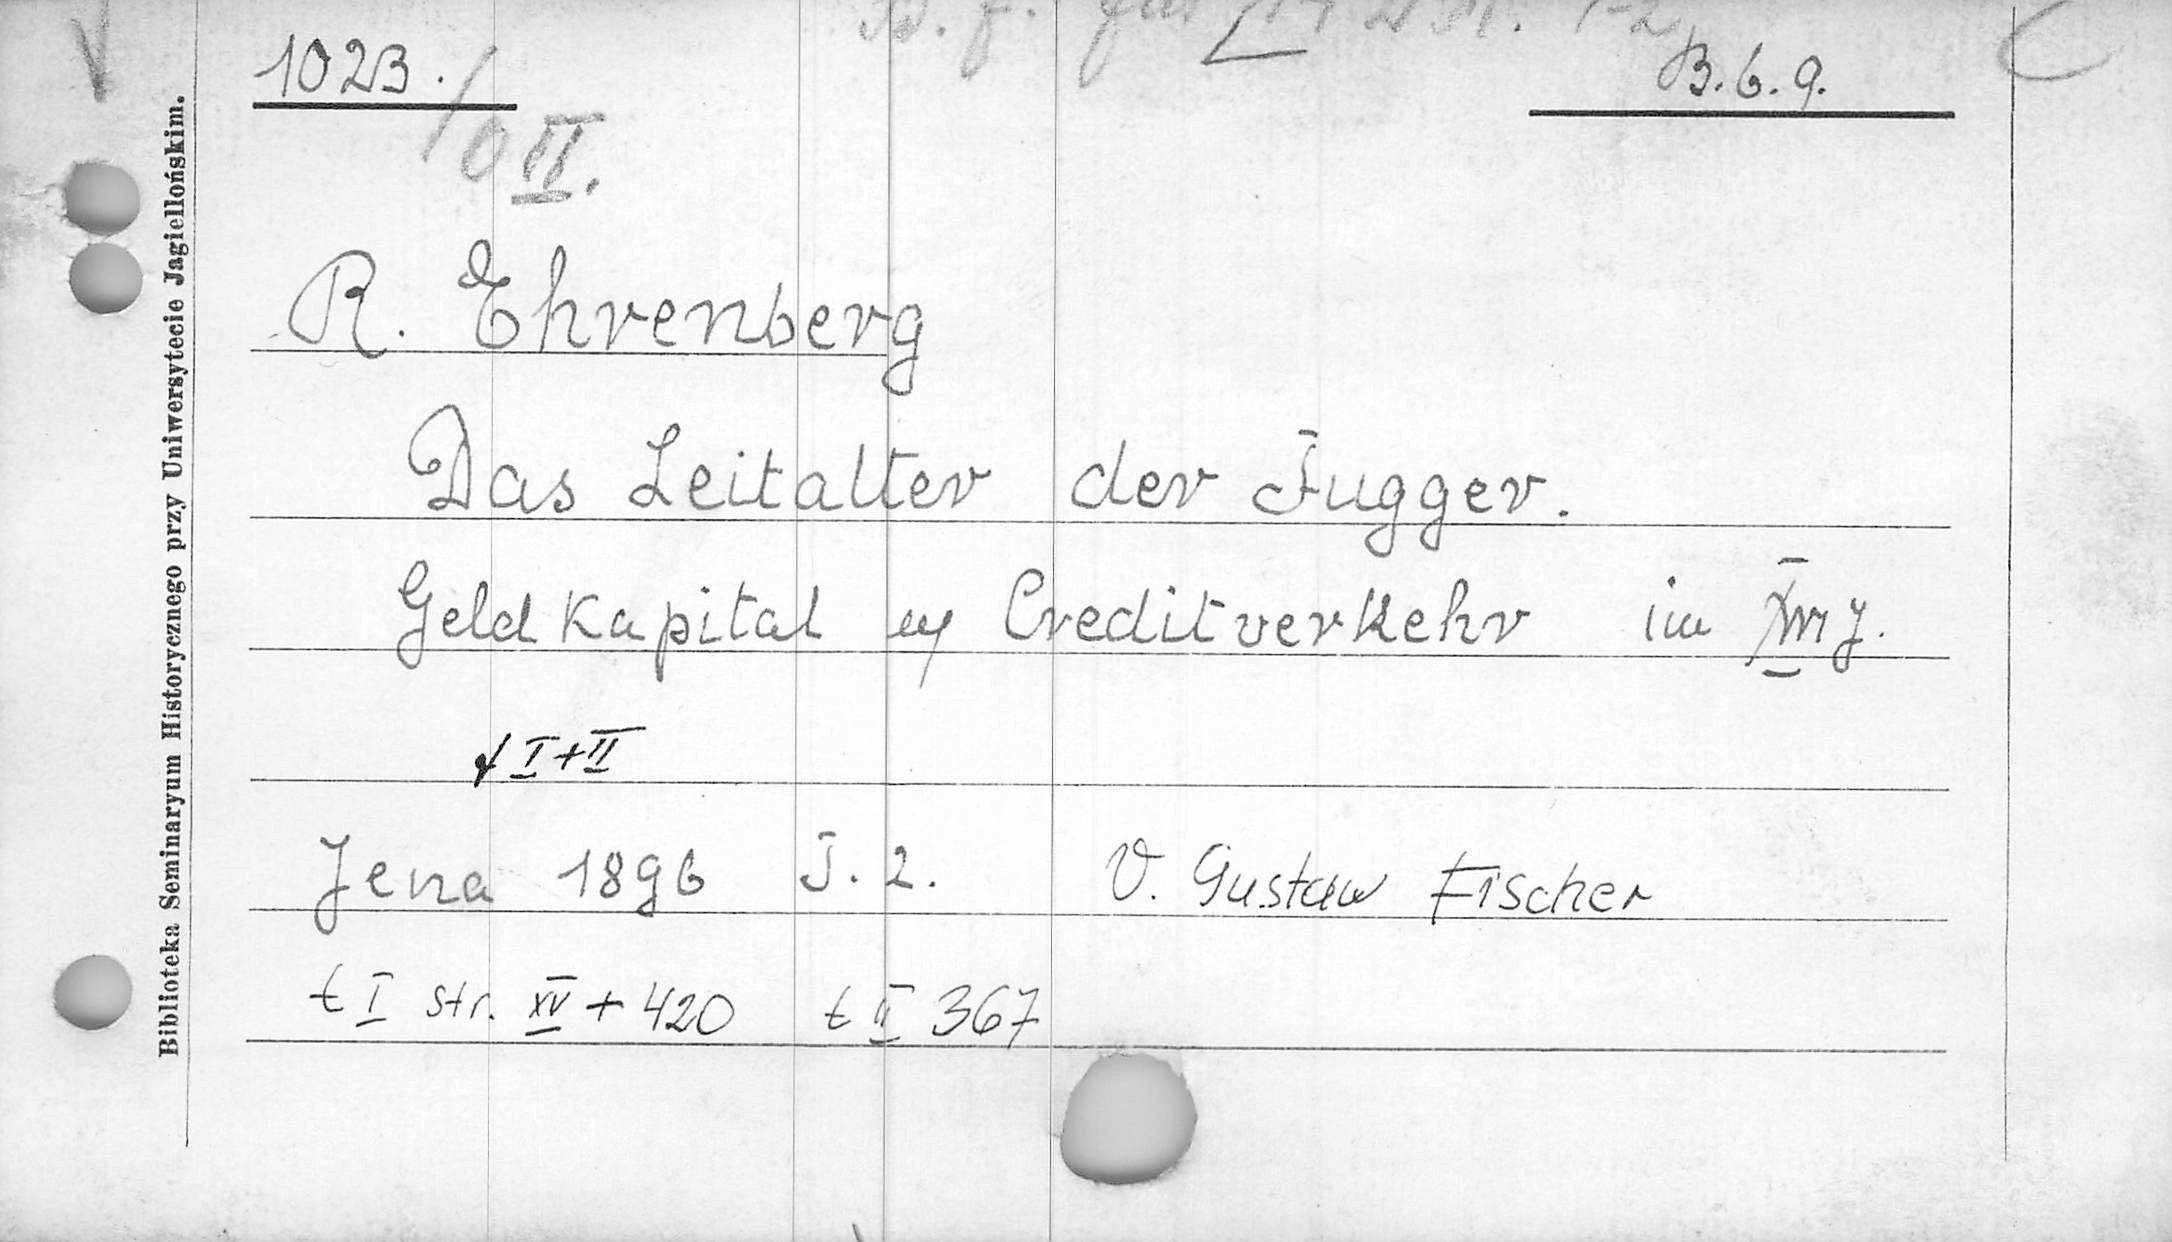 1023.
B. 6. 9.
/0 II.
R. Ehrenberg
Das Zeitalter der Fugger.
Geld Kapital u Creditverkehr im XVI J.
I + II
Jena 1896 T. 2. V. Gustaw Fischer
t I str. XV + 420 t II 367
Biblioteka Seminaryum Historycznego przy Uniwersytecie Jagiellońskim.